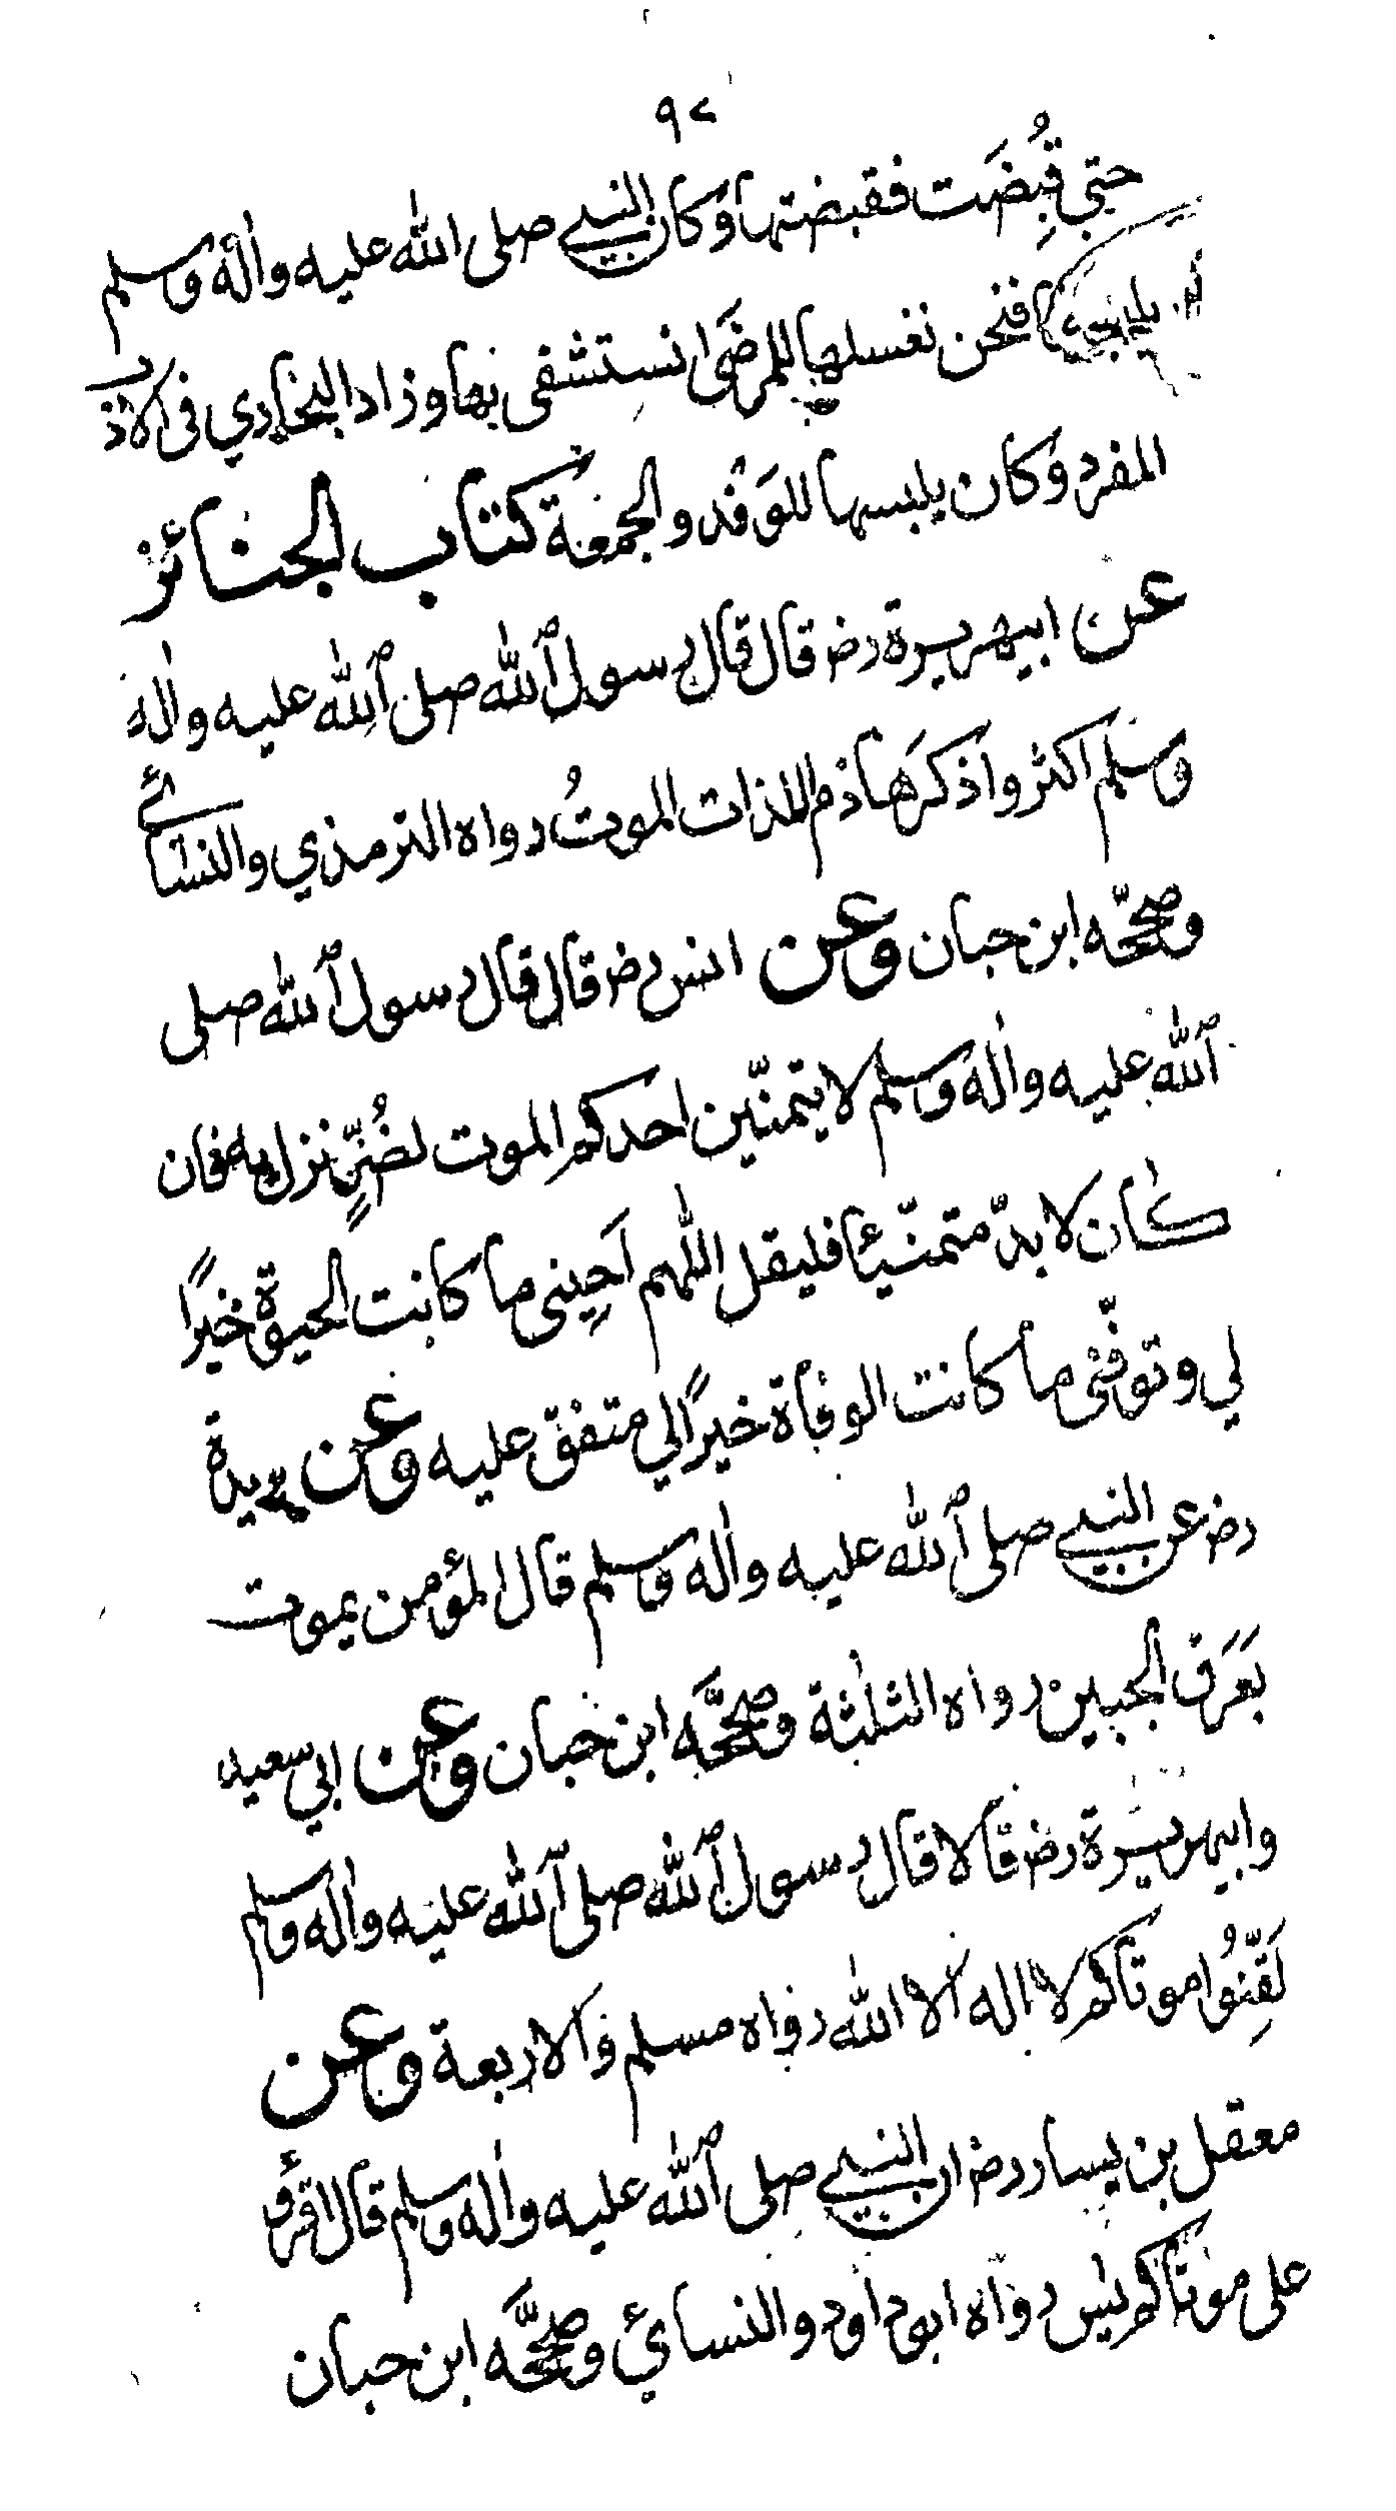 ٩٢
حتى قُبِضَت فقبضتها وكان النبي صلى الله عليه واله وسلم
يلبسها فنحن نغسلها للمرضى نستشفى بها وزاد البخاري فى الادب
المفرد وكان يلبسها للوَفْد والجمعة كتاب الجنائز
عن ابيهريرة رض قال قال رسول الله صلى الله عليه واله
وسلم اكثروا ذكر هاذم اللذات الموتُ رواه الترمذي والنسائي
وصححّه ابن حبان وعن انس رض قال قال رسول الله صلى
الله عليه واله وسلم لا يتمنّين احدكم الموت لضُرٍّ نزل به فان
كان لا بدّ متمنّيًا فليقل اللهم اَحيِنى ما كانت الحيوة خيرًا
لي وتوفّنى ما كانت الوفاة خيرًا لي متفق عليه وعن بريدة
رض عن النبي صلى الله عليه واله وسلم قال المؤمن يموت
بعَرَق الجبين رواه الثلثة وصححَّه ابن حبان وعن ابي سعيد
وابيهريرة رض قالا قال رسول الله صلى الله عليه واله وسلم
لَقِّنُوا موتاكم لا اله الا الله رواه مسلم والاربعة وعن
معقل بن يسار رض ان النبي صلى الله عليه واله وسلم قال اقرؤ
على موتاكم يس رواه ابو داود والنسائي وصححَّه ابن حبان